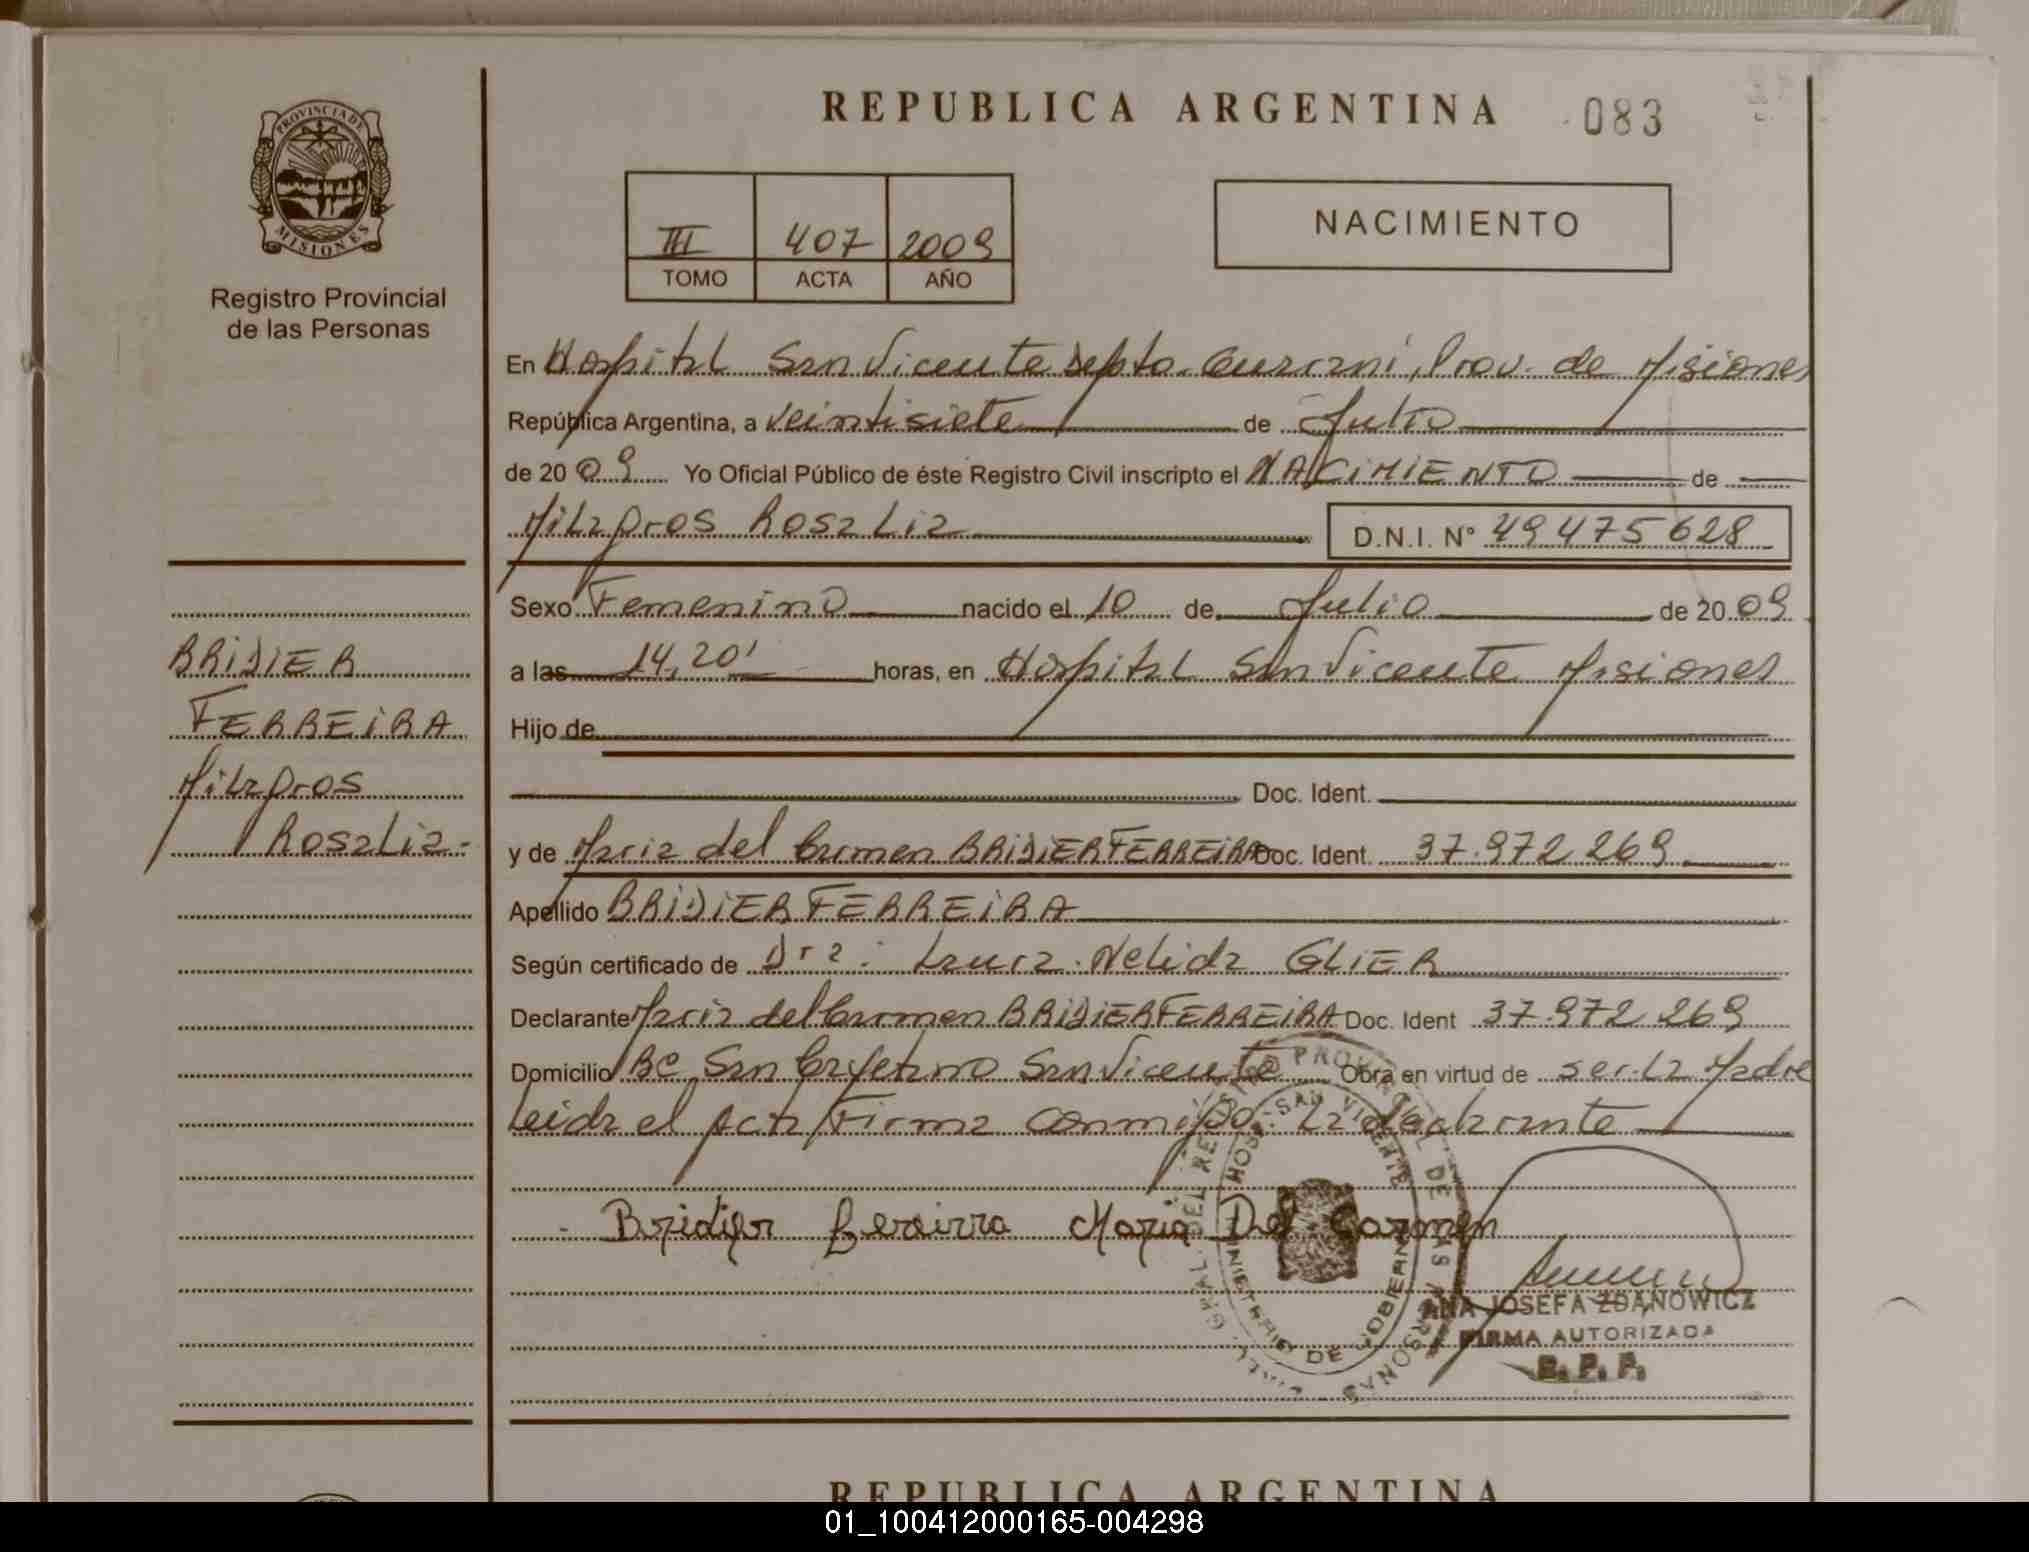 REPUBLICA ARGENTINA
083
PROVINCIA DE
MISIONES
Registro Provincial
de las Personas
III 407 2009
TOMO ACTA AÑO
NACIMIENTO
En Hospital San Vicente Depto. Guarani, Prov. de Misiones
República Argentina, a veintisiete de Julio
de 20 09 Yo Oficial Público de éste Registro Civil inscripto el NACIMIENTO de
Milagros Rosalia D.N.I. N° 49475628
Sexo Femenino nacido el 10 de Julio de 20 09
a las 14,20' horas, en Hospital San Vicente Misiones
Hijo de
Doc. Ident.
y de Maria del Carmen BRIDIER FERREIRA Doc. Ident. 37.972.269
Apellido BRIDIER FERREIRA
Según certificado de Dra: Laura Nelida GLIER
Declarante Maria del Carmen BRIDIER FERREIRA Doc. Ident 37.972.269
Domicilio Bº San Cayetano San Vicente Obra en virtud de ser la Madre
Leida el Acta Firma Conmigo: La declarante
Bridier Fereirra Maria Del Carmen
BRIDIER
FERREIRA
Milagros
Rosalia-
GRAL. DEL REGISTRO PROVINCIAL DE LAS PERSONAS
HOSP. SAN VICENTE
MINISTERIO DE GOBIERNO
ANA JOSEFA ZDANOWICZ
FIRMA AUTORIZADA
R. P. P.
REPUBLICA ARGENTINA
01_100412000165-004298